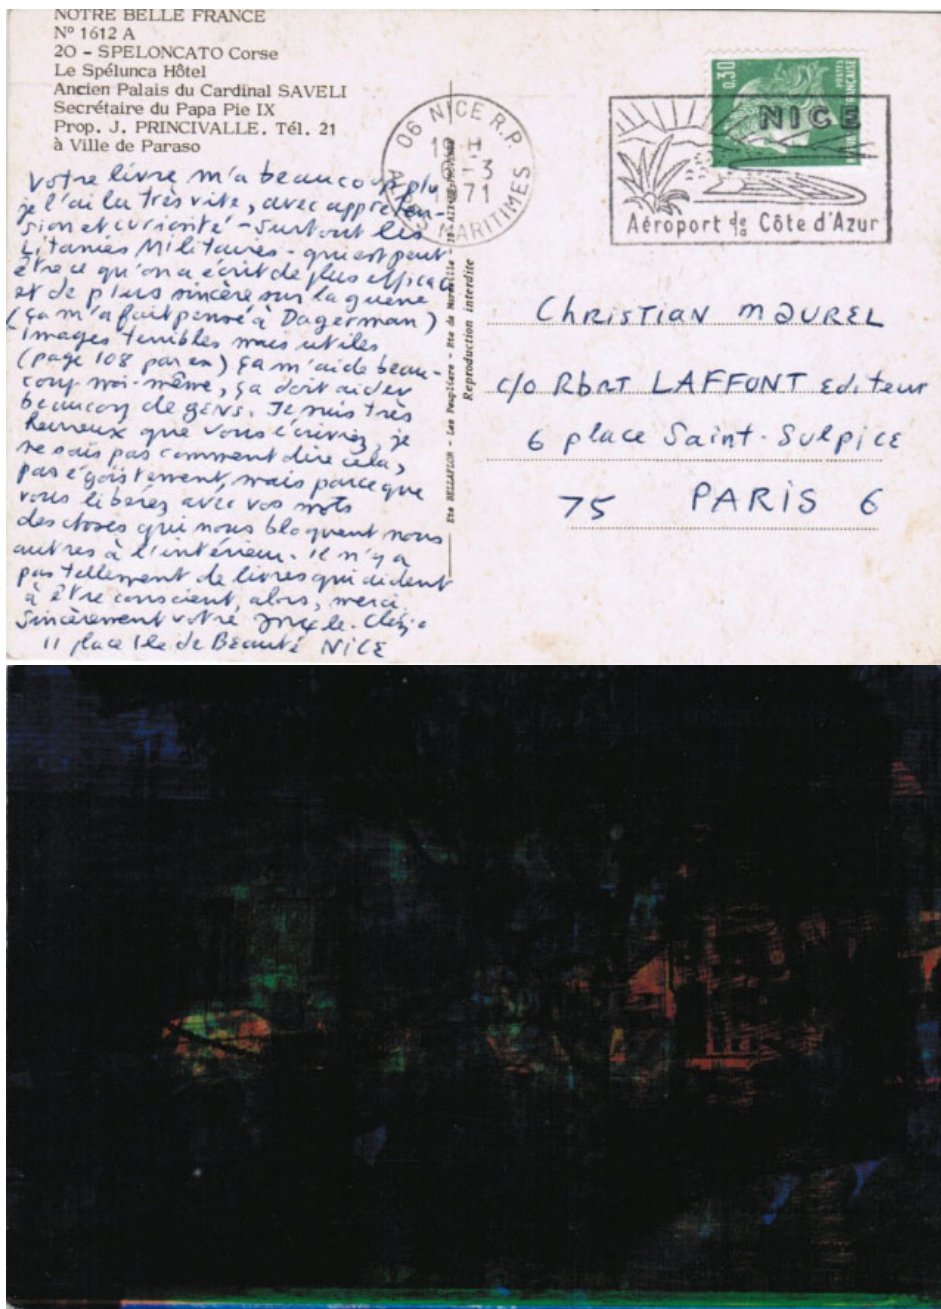 NOTRE BELLE FRANCE
N° 1612 A
20 - SPELONCATO Corse
Le Spélunca Hôtel
Ancien Palais du Cardinal SAVELI
Secrétaire du Papa Pie IX
Prop. J. PRINCIVALLE. Tél. 21
à Ville de Paraso
Votre livre m'a beaucoup plu
je l'ai lu très vite, avec appréhen-
sion et curiosité - Surtout les
Litanies Militaires - qui est peut
être ce qu'on a écrit de plus efficace
et de plus sincère sur la guerre
(ça m'a fait pensé à Dagerman)
images terribles mais utiles
(page 108 par ex) ça m'aide beau-
coup moi-même, ça doit aider
beaucoup de gens. Je suis très
heureux que vous l'écriviez, je
ne sais pas comment dire cela,
pas égoïstement, mais parce que
vous libérez avec vos mots
des choses qui nous bloquent nous
autres à l'intérieur. il n'y a
pas tellement de livres qui aident
à être conscient, alors, merci
Sincèrement votre J M G Le Clézio
11 place Ile de Beauté NICE
Reproduction interdite
06 NICE R.P.
1971
ALPES MARITIMES
0.30
POSTES
NICE
Aéroport de la Côte d'Azur
Christian MAUREL
c/o Rbrt LAFFONT Editeur
6 place Saint-Sulpice
75 PARIS 6